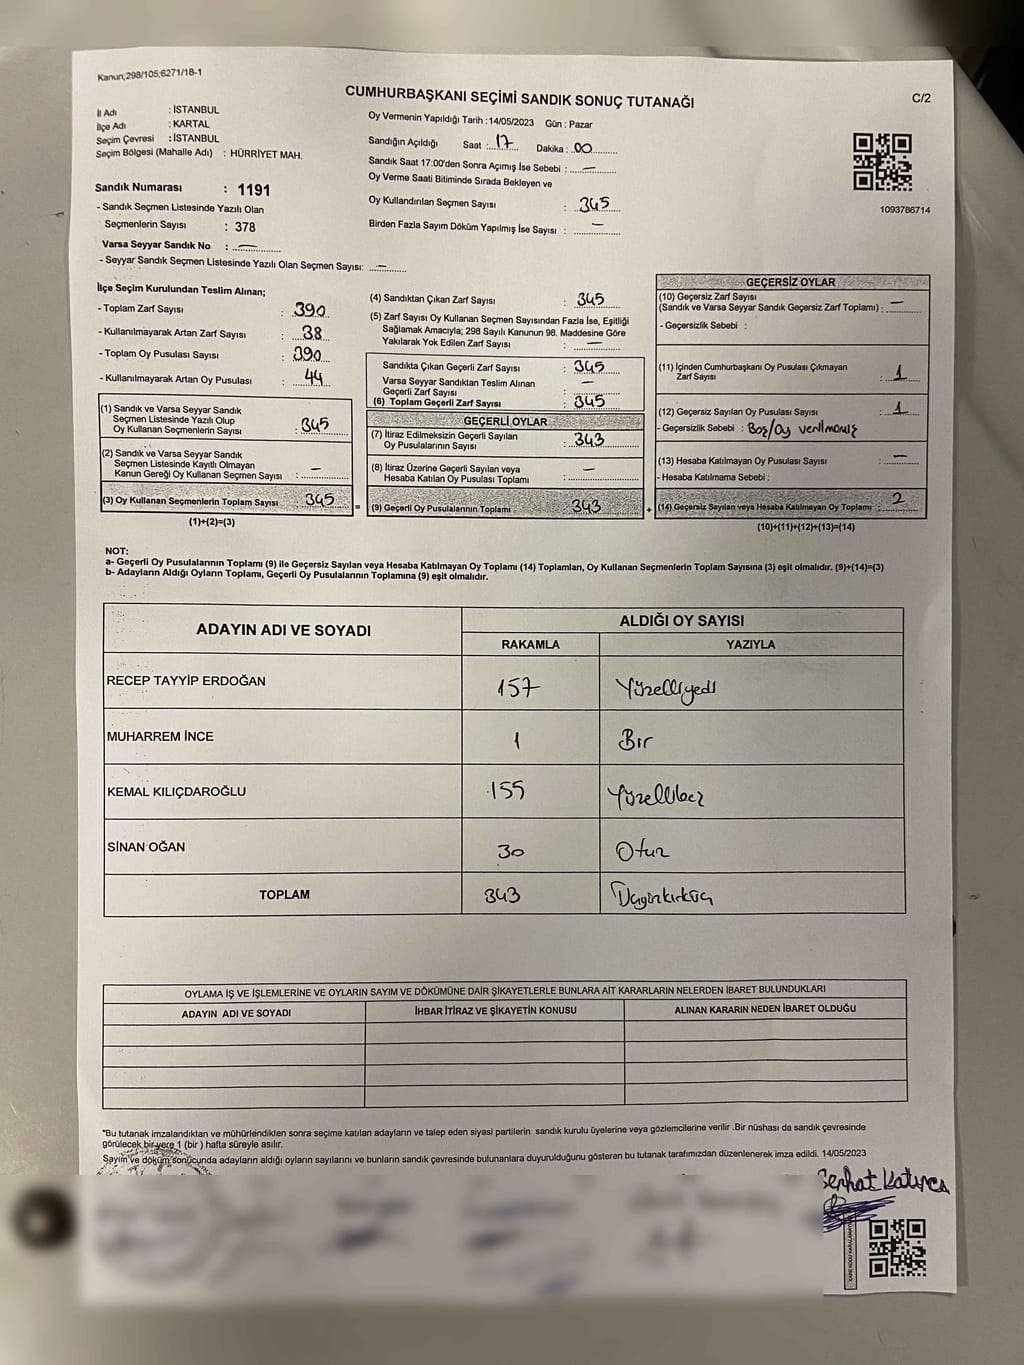 Kanun;298/105;6271/18-1
CUMHURBAŞKANI SEÇİMİ SANDIK SONUÇ TUTANAĞI
C/2
İl Adı : İSTANBUL
İlçe Adı : KARTAL
Seçim Çevresi : İSTANBUL
Seçim Bölgesi (Mahalle Adı) : HÜRRİYET MAH.
Sandık Numarası : 1191
- Sandık Seçmen Listesinde Yazılı Olan
Seçmenlerin Sayısı : 378
Varsa Seyyar Sandık No : —
- Seyyar Sandık Seçmen Listesinde Yazılı Olan Seçmen Sayısı: —
Oy Vermenin Yapıldığı Tarih : 14/05/2023 Gün : Pazar
Sandığın Açıldığı Saat : 17 Dakika : 00
Sandık Saat 17:00'den Sonra Açımış İse Sebebi : —
Oy Verme Saati Bitiminde Sırada Bekleyen ve
Oy Kullandırılan Seçmen Sayısı : 345
Birden Fazla Sayım Döküm Yapılmış İse Sayısı : —
1093786714
İlçe Seçim Kurulundan Teslim Alınan;
- Toplam Zarf Sayısı : 390
- Kullanılmayarak Artan Zarf Sayısı : 38
- Toplam Oy Pusulası Sayısı : 390
- Kullanılmayarak Artan Oy Pusulası : 44
(1) Sandık ve Varsa Seyyar Sandık
Seçmen Listesinde Yazılı Olup
Oy Kullanan Seçmenlerin Sayısı : 345
(2) Sandık ve Varsa Seyyar Sandık
Seçmen Listesinde Kayıtlı Olmayan
Kanun Gereği Oy Kullanan Seçmen Sayısı : —
(3) Oy Kullanan Seçmenlerin Toplam Sayısı 345
(1)+(2)=(3)
=
(4) Sandıktan Çıkan Zarf Sayısı : 345
(5) Zarf Sayısı Oy Kullanan Seçmen Sayısından Fazla İse, Eşitliği
Sağlamak Amacıyla; 298 Sayılı Kanunun 98. Maddesine Göre
Yakılarak Yok Edilen Zarf Sayısı : —
Sandıkta Çıkan Geçerli Zarf Sayısı : 345
Varsa Seyyar Sandıktan Teslim Alınan
Geçerli Zarf Sayısı : —
(6) Toplam Geçerli Zarf Sayısı : 345
GEÇERLİ OYLAR
(7) İtiraz Edilmeksizin Geçerli Sayılan
Oy Pusulalarının Sayısı : 343
(8) İtiraz Üzerine Geçerli Sayılan veya
Hesaba Katılan Oy Pusulası Toplamı : —
(9) Geçerli Oy Pusulalarının Toplamı : 343
+
GEÇERSİZ OYLAR
(10) Geçersiz Zarf Sayısı
(Sandık ve Varsa Seyyar Sandık Geçersiz Zarf Toplamı) : —
- Geçersizlik Sebebi :
(11) İçinden Cumhurbaşkanı Oy Pusulası Çıkmayan
Zarf Sayısı : 1
(12) Geçersiz Sayılan Oy Pusulası Sayısı : 1
- Geçersizlik Sebebi : Boş/Oy verilmemiş
(13) Hesaba Katılmayan Oy Pusulası Sayısı : —
- Hesaba Katılmama Sebebi :
(14) Geçersiz Sayılan veya Hesaba Katılmayan Oy Toplamı : 2
(10)+(11)+(12)+(13)=(14)
NOT:
a- Geçerli Oy Pusulalarının Toplamı (9) ile Geçersiz Sayılan veya Hesaba Katılmayan Oy Toplamı (14) Toplamları, Oy Kullanan Seçmenlerin Toplam Sayısına (3) eşit olmalıdır. (9)+(14)=(3)
b- Adayların Aldığı Oyların Toplamı, Geçerli Oy Pusulalarının Toplamına (9) eşit olmalıdır.
ADAYIN ADI VE SOYADI ALDIĞI OY SAYISI
RAKAMLA YAZIYLA
RECEP TAYYİP ERDOĞAN 157 Yüzelliyedi
MUHARREM İNCE 1 Bir
KEMAL KILIÇDAROĞLU 155 Yüzellibeş
SİNAN OĞAN 30 Otuz
TOPLAM 343 Üçyüzkırküç
OYLAMA İŞ VE İŞLEMLERİNE VE OYLARIN SAYIM VE DÖKÜMÜNE DAİR ŞİKAYETLERLE BUNLARA AİT KARARLARIN NELERDEN İBARET BULUNDUKLARI
ADAYIN ADI VE SOYADI İHBAR İTİRAZ VE ŞİKAYETİN KONUSU ALINAN KARARIN NEDEN İBARET OLDUĞU
*Bu tutanak imzalandıktan ve mühürlendikten sonra seçime katılan adayların ve talep eden siyasi partilerin sandık kurulu üyelerine veya gözlemcilerine verilir .Bir nüshası da sandık çevresinde
görülecek bir yere 1 (bir ) hafta süreyle asılır.
Sayım ve döküm sonucunda adayların aldığı oyların sayılarını ve bunların sandık çevresinde bulunanlara duyurulduğunu gösteren bu tutanak tarafımızdan düzenlenerek imza edildi. 14/05/2023